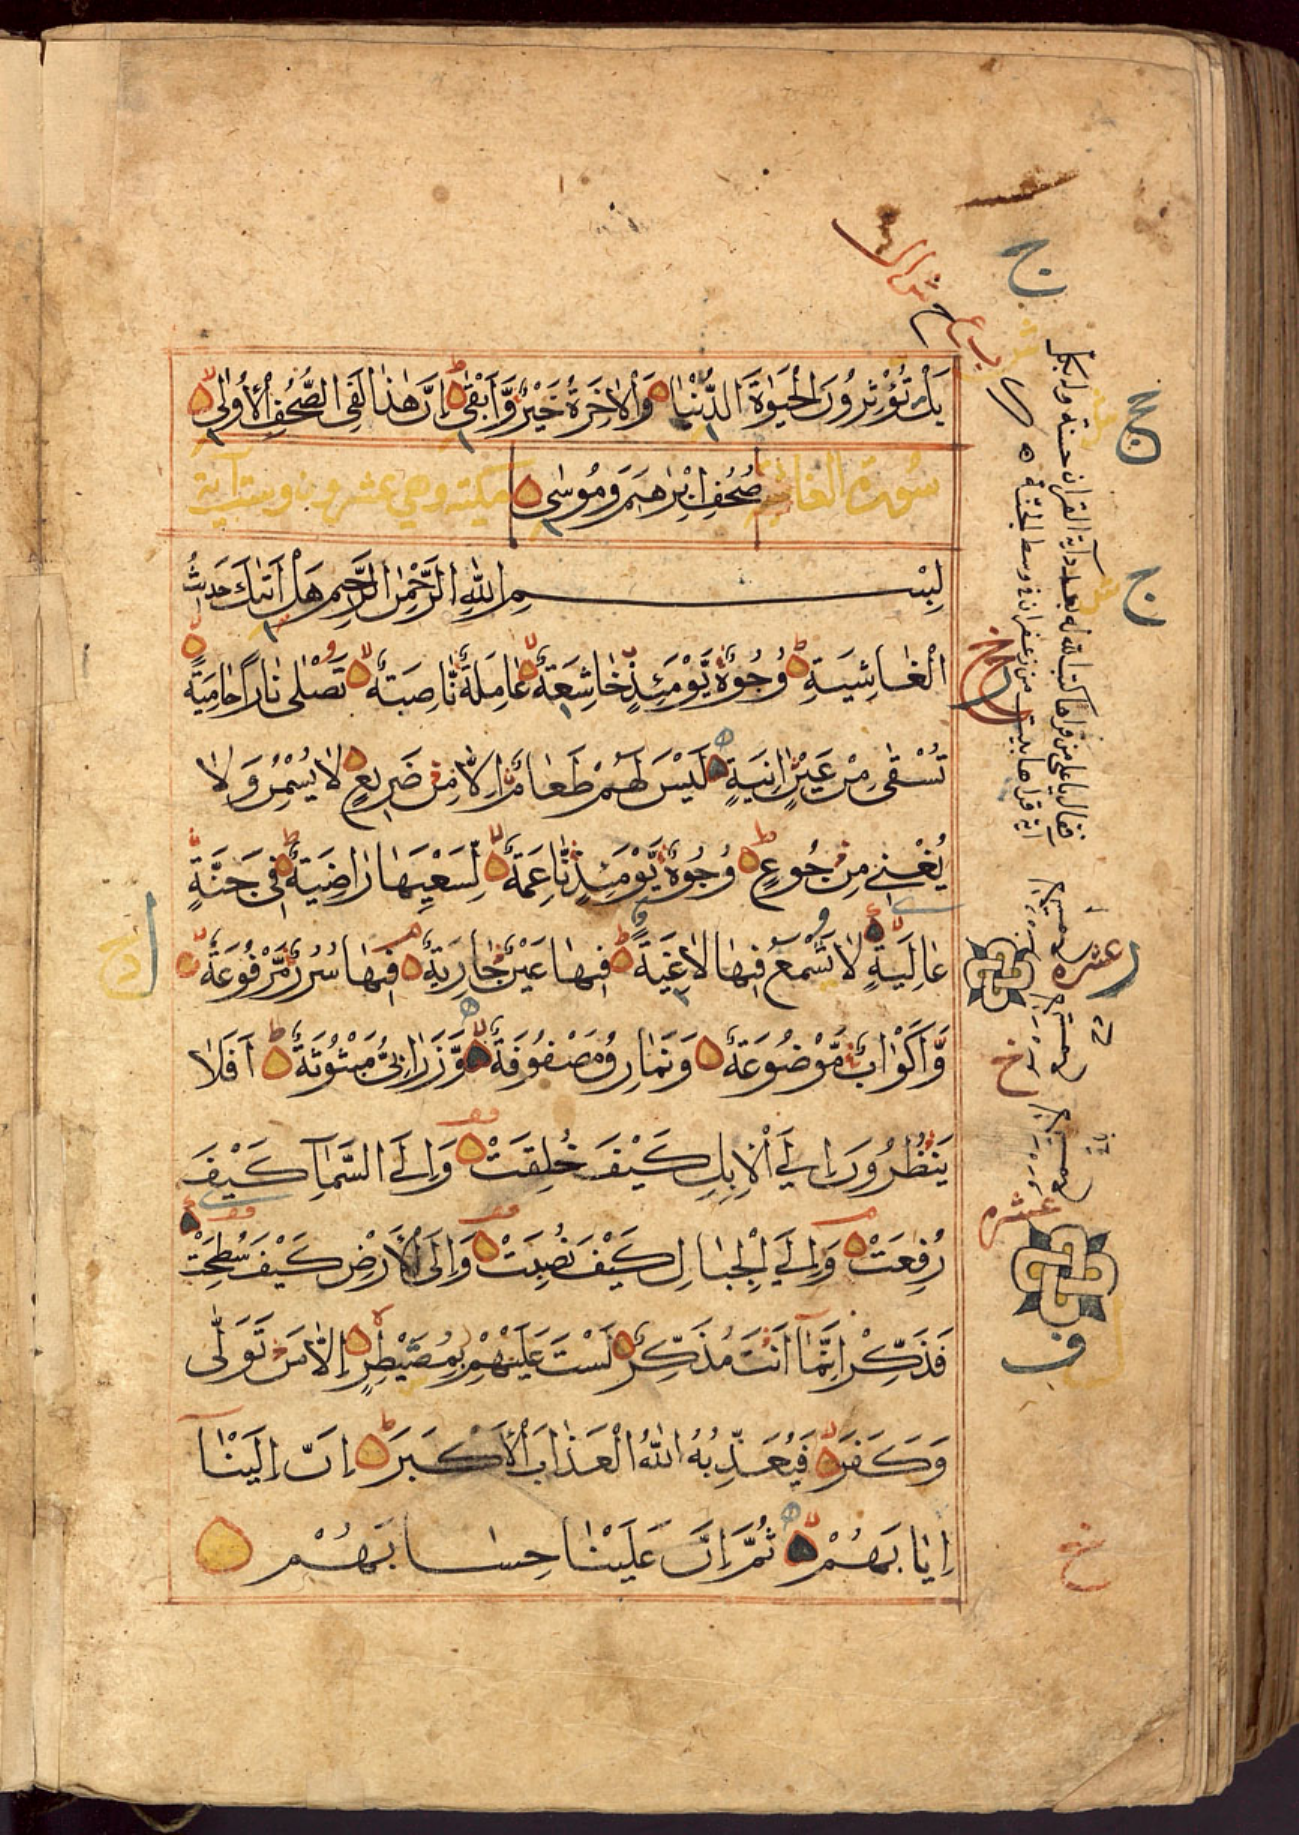 بَلْ تُؤْثِرُونَ الْحَيٰوةَ الدُّنْيَا وَالْاٰخِرَةُ خَيْرٌ وَّاَبْقٰى اِنَّ هٰذَا لَفِى الصُّحُفِ الْاُولٰى
سورة الغاشية صُحُفِ اِبْرٰهِيمَ وَمُوسٰى مكية وهي عشرون وست آية
بِسْمِ اللّٰهِ الرَّحْمٰنِ الرَّحِيمِ هَلْ اَتٰىكَ حَدِيثُ
الْغَاشِيَةِ وُجُوهٌ يَّوْمَئِذٍ خَاشِعَةٌ عَامِلَةٌ نَّاصِبَةٌ تَصْلٰى نَارًا حَامِيَةً
تُسْقٰى مِنْ عَيْنٍ اٰنِيَةٍ لَيْسَ لَهُمْ طَعَامٌ اِلَّا مِنْ ضَرِيعٍ لَا يُسْمِنُ وَلَا
يُغْنِي مِنْ جُوعٍ وُجُوهٌ يَّوْمَئِذٍ نَّاعِمَةٌ لِّسَعْيِهَا رَاضِيَةٌ فِى جَنَّةٍ
عَالِيَةٍ لَا تَسْمَعُ فِيهَا لَاغِيَةً فِيهَا عَيْنٌ جَارِيَةٌ فِيهَا سُرُرٌ مَّرْفُوعَةٌ
وَّاَكْوَابٌ مَّوْضُوعَةٌ وَنَمَارِقُ مَصْفُوفَةٌ وَّزَرَابِىُّ مَبْثُوثَةٌ اَفَلَا
يَنْظُرُونَ اِلَى الْاِبِلِ كَيْفَ خُلِقَتْ وَاِلَى السَّمَآءِ كَيْفَ
رُفِعَتْ وَاِلَى الْجِبَالِ كَيْفَ نُصِبَتْ وَاِلَى الْاَرْضِ كَيْفَ سُطِحَتْ
فَذَكِّرْ اِنَّمَآ اَنْتَ مُذَكِّرٌ لَسْتَ عَلَيْهِمْ بِمُصَيْطِرٍ اِلَّا مَنْ تَوَلّٰى
وَكَفَرَ فَيُعَذِّبُهُ اللّٰهُ الْعَذَابَ الْاَكْبَرَ اِنَّ اِلَيْنَآ
اِيَابَهُمْ ثُمَّ اِنَّ عَلَيْنَا حِسَابَهُمْ
عشره
عشره